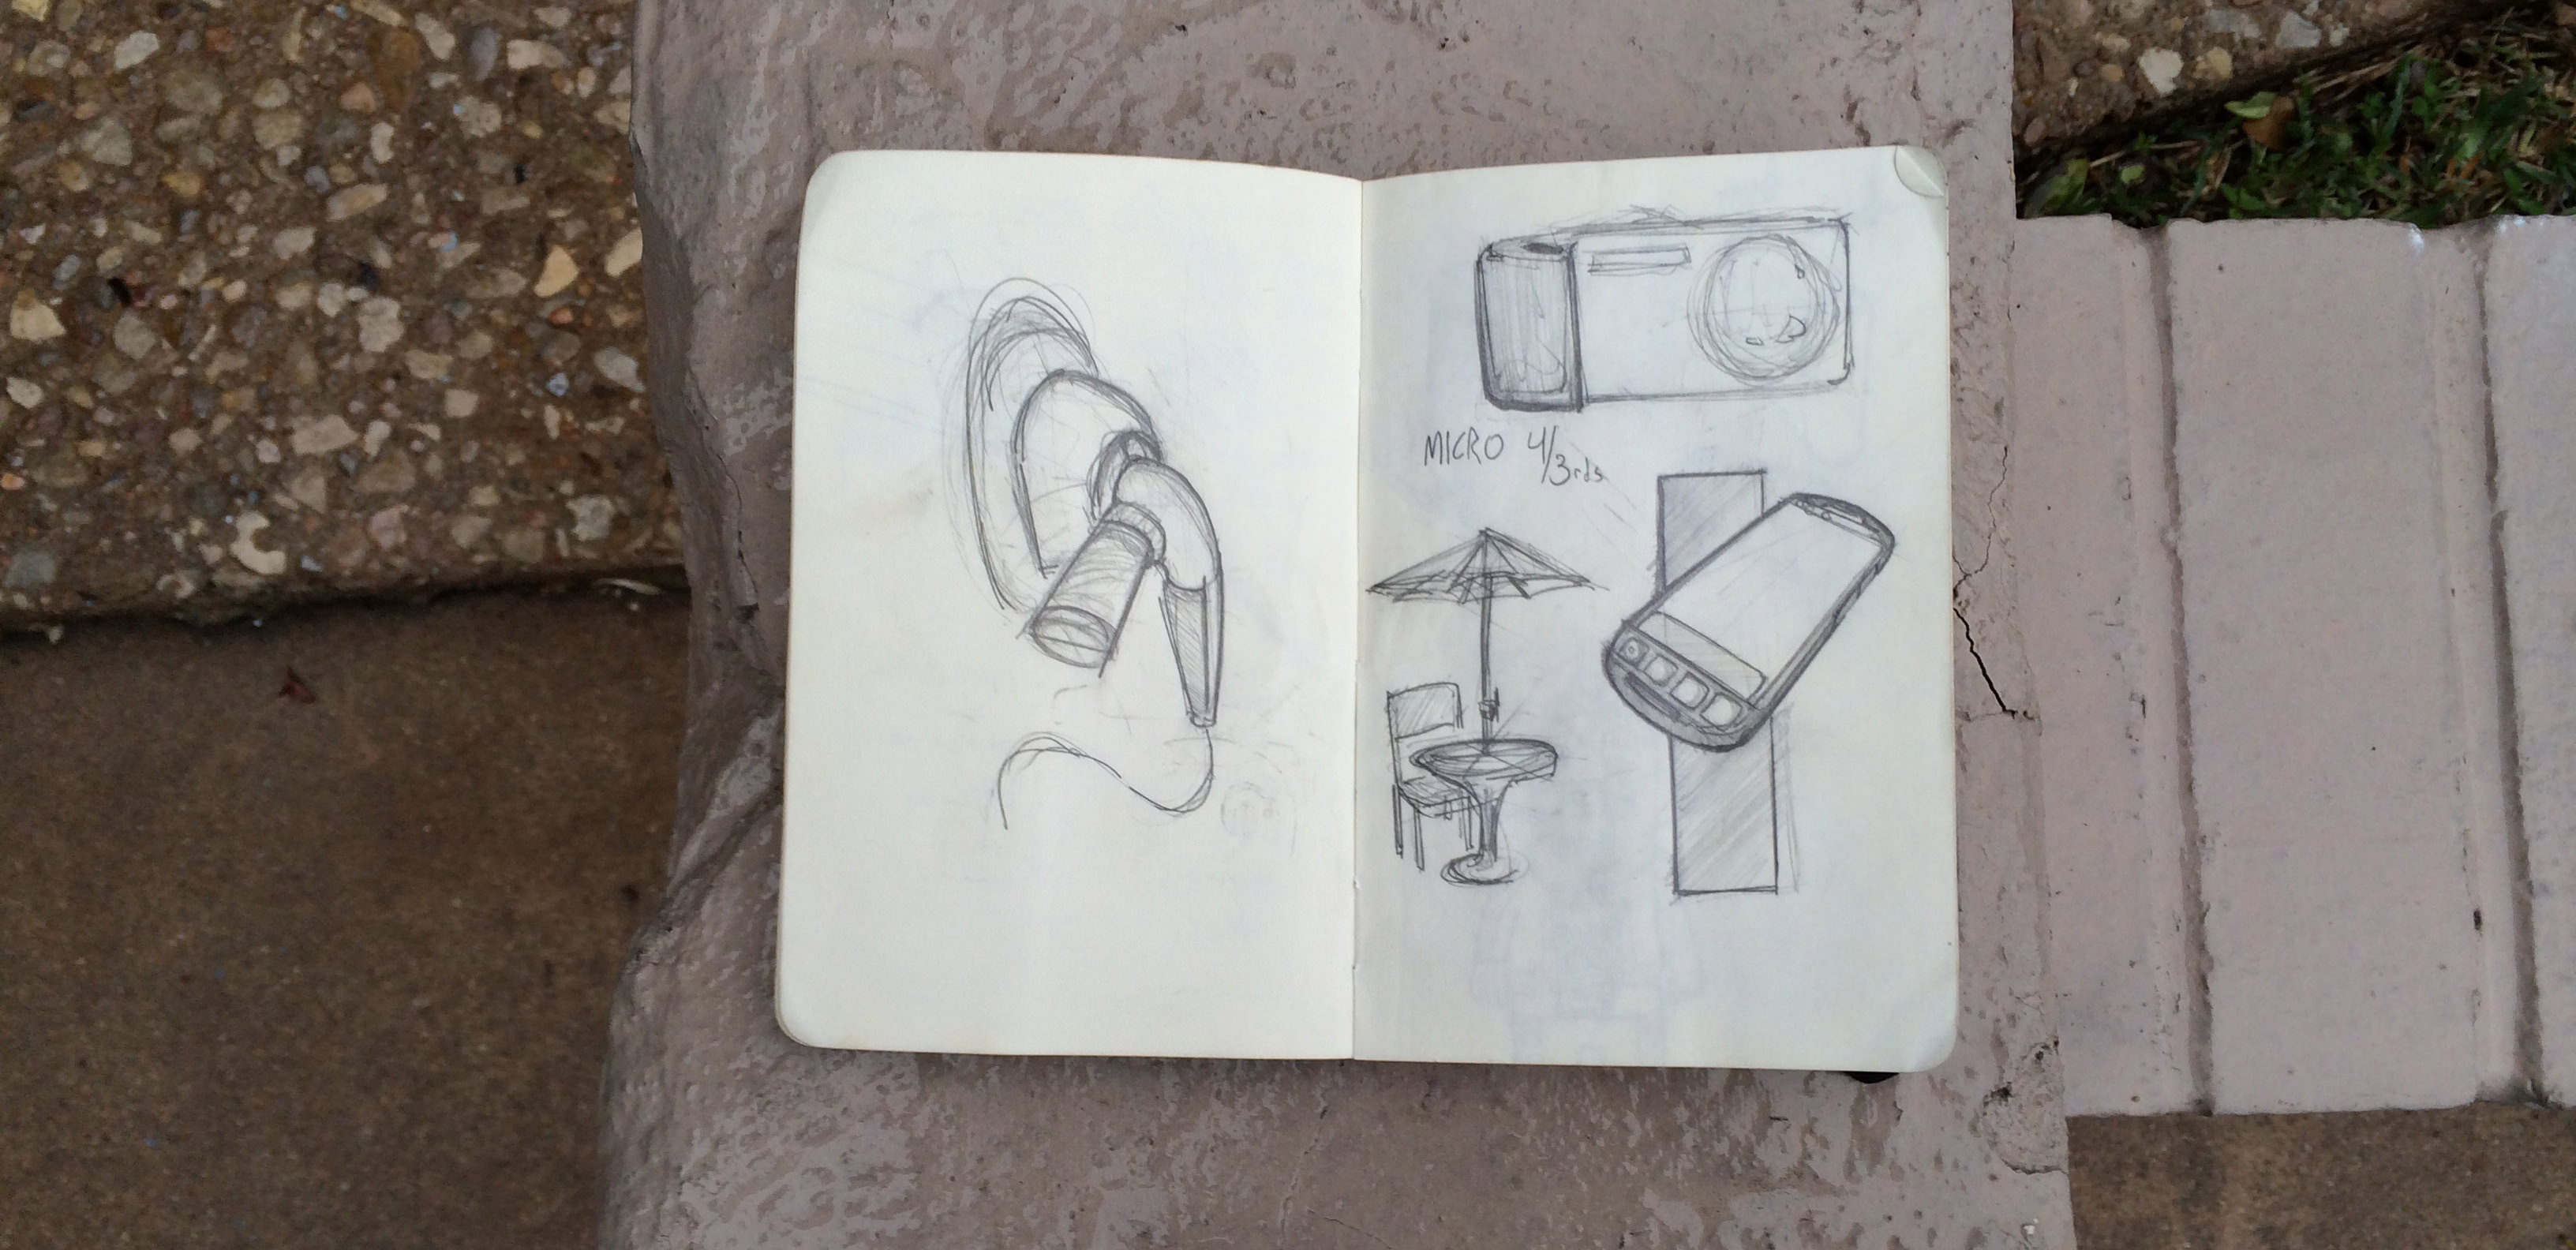 MICRO 4/3rds